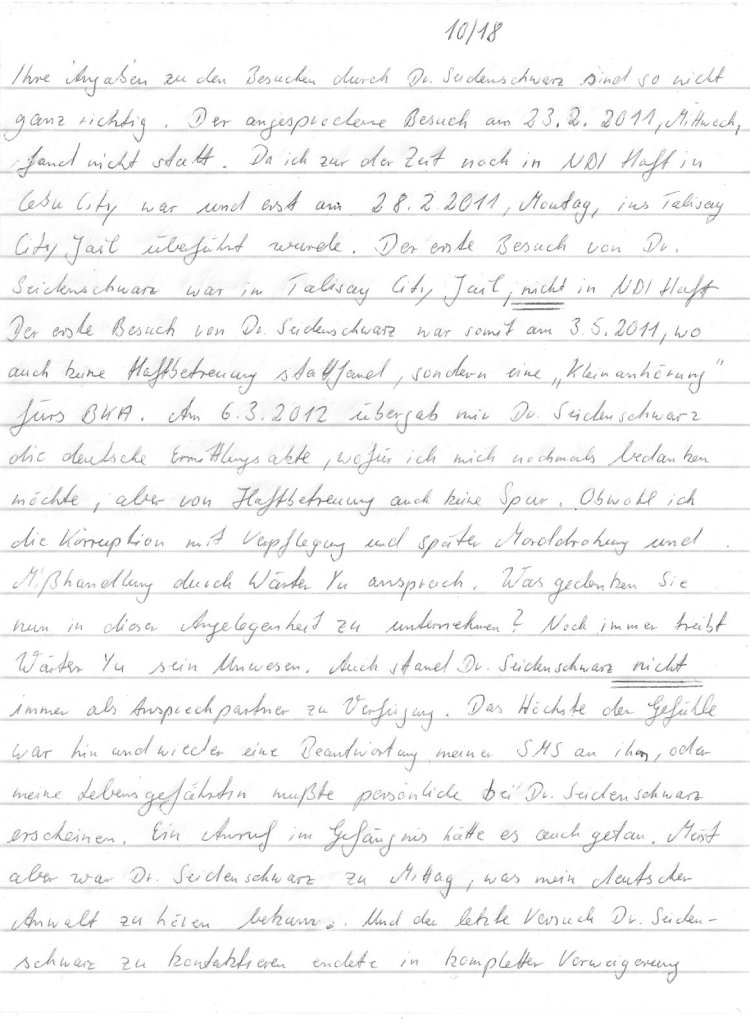 10/18
Ihre Angaben zu den Besuchen durch Dr. Seidenschwarz sind so nicht
ganz richtig. Der angesprochene Besuch am 23.2.2011, Mittwoch,
fand nicht statt. Da ich zur der Zeit noch in NBI Haft in
Cebu City war und erst am 28.2.2011, Montag, ins Talisay
City Jail überführt wurde. Der erste Besuch von Dr.
Seidenschwarz war im Talisay City Jail, nicht in NBI Haft
Der erste Besuch von Dr. Seidenschwarz war somit am 3.5.2011, wo
auch keine Haftbetreuung stattfand, sondern eine „Kleinanhörung"
fürs BKA. Am 6.3.2012 übergab mir Dr. Seidenschwarz
die deutsche Ermittlungsakte, wofür ich mich nochmals bedanken
möchte, aber von Haftbetreuung auch keine Spur. Obwohl ich
die Korruption mit Verpflegung und später Morddrohung und
Mißhandlung durch Wärter Yu ansprach. Was gedenken Sie
nun in dieser Angelegenheit zu unternehmen? Noch immer treibt
Wärter Yu sein Unwesen. Auch stand Dr. Seidenschwarz nicht
immer als Ansprechpartner zu Verfügung. Das Höchste der Gefühle
war hin und wieder eine Beantwortung meiner SMS an ihm, oder
meine Lebensgefährtin mußte persönlich bei Dr. Seidenschwarz
erscheinen. Ein Anruf im Gefängnis hätte es auch getan. Meist
aber war Dr. Seidenschwarz zu Mittag, was mein deutscher
Anwalt zu hören bekam. Und der letzte Versuch Dr. Seiden-
schwarz zu kontaktieren endete in kompletter Verweigerung